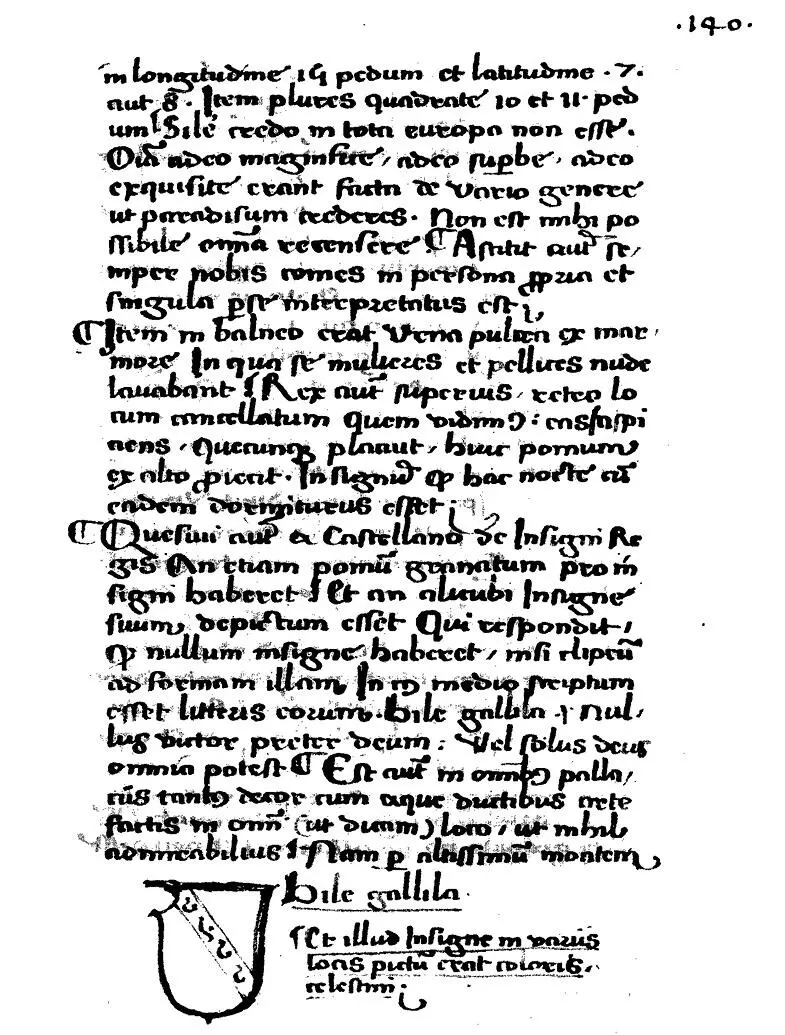 .140.
in longitudine 14 pedum et latitudine .7.
aut 8. Item plures quadrate 10 et 11. ped
um. Silē credo in tota europa non esse.
Oīa adeo magnifice, adeo supbe, adeo
exquisite erant facta de vario genere
ut paradisum crederes. Non est mihi po
ssibile omīa recensere ¶ Astitit aut̄ se,
mper nobis comes in persona ppria et
singula p se interpretatus est;
¶ Item in balneo erat vena pulcra ex mar,
more In qua se mulieres et pellices nude
lauabant ¶ Rex aut̄ superius, retro lo
cum cancellatum quem vidimꝰ: eas aspi
ciens, Quecunqꝫ placuit, huic pomum
ex alto proiecit. In signum ꝙ hac nocte cū
eadem dormiturus esset;
¶ Quesiui aut̄ a Castellano de Insigni Re
gis An etiam pomū granatum pro in
signi haberet ¶ Et an alicubi Insigne
suum, depictum esset Qui respondit,
ꝙ nullum insigne haberet, nisi clipeū
ad formam illam, In cuius medio scriptum
esset litteris eorum. Hile gallila .i. Nul,
lus victor preter deum: Vel solus deus
omnia potest ¶ Est aut̄ in omībꝰ palla,
ciis tantꝰ decor cum aque ductibus arte
factis in omī (ut dicam) loco, ut nihil
admirabilius ¶ Nam p altissimū montem,
Hile gallila.
¶ Et illud Insigne in variis
locis pictū erat coloris,
celestini;